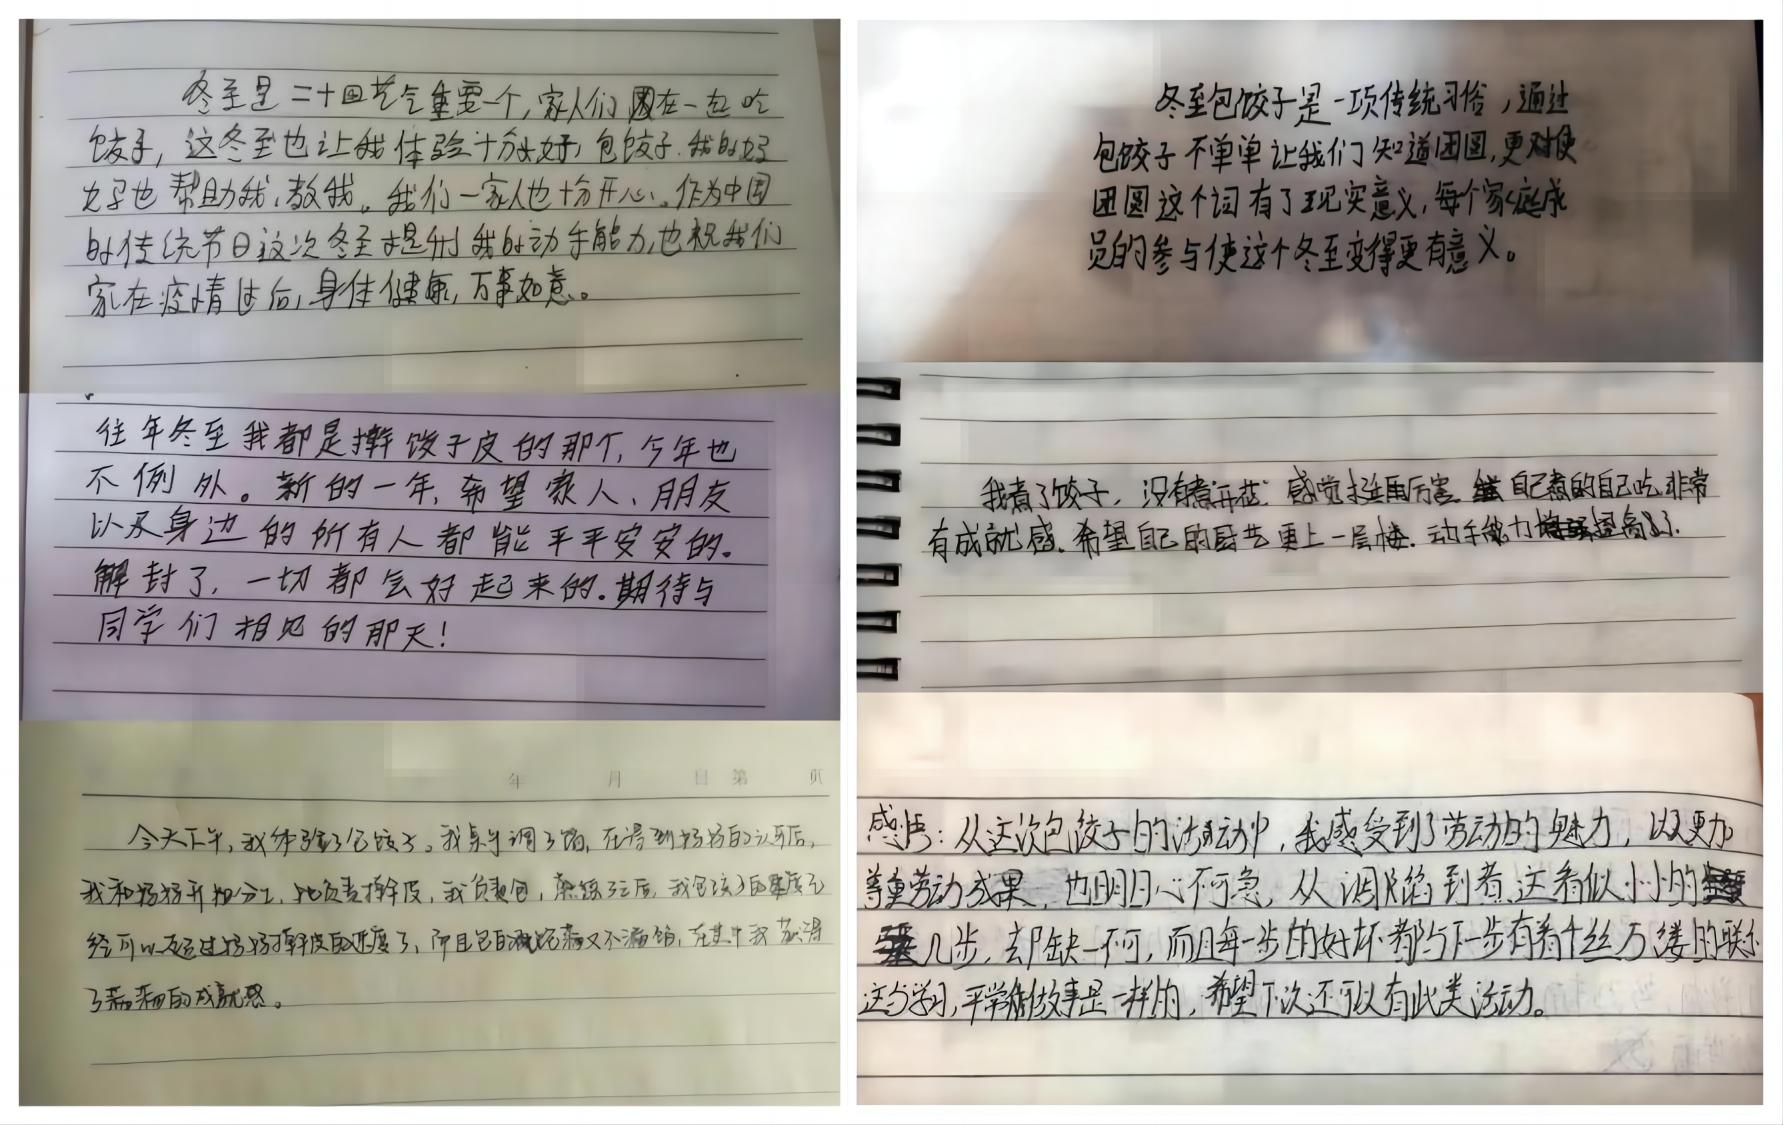 冬至是二十四节气重要一个,家人们围在一起吃
饺子,这冬至也让我体验十分好,包饺子.我的妈
妈也帮助我,教我。我们一家人也十分开心。作为中国
的传统节日这次冬至提升我的动手能力,也祝我们
家在疫情过后,身体健康,万事如意。
往年冬至我都是擀饺子皮的那个,今年也
不例外。新的一年,希望家人、朋友
以及身边的所有人都能平平安安的。
解封了,一切都会好起来的.期待与
同学们相见的那天!
年 月 日 第 页
今天下午,我体验了包饺子。我亲手调了馅,在得到妈妈的认可后,
我和妈妈开始分工,她负责擀皮,我负责包,熟练之后,我包饺子的速度已
经可以超过妈妈擀皮的速度了,而且包的又不漏馅,在其中我获得
了满满的成就感。
冬至包饺子是一项传统习俗,通过
包饺子不单单让我们知道团圆,更对使
团圆这个词有了现实意义,每个家庭成
员的参与使这个冬至变得更有意义。
我煮了饺子,没有煮开花.感觉挺厉害 自己煮的自己吃,非常
有成就感.希望自己的厨艺更上一层楼.动手能力提高了.
感悟:从这次包饺子的活动中,我感受到了劳动的魅力,以及更加
尊重劳动成果,也明白心不可急,从调馅到煮,这看似小小的
几步,却缺一不可,而且每一步的好坏都与下一步有着千丝万缕的联系
这与学习,平常做事是一样的,希望下次还可以有此类活动。